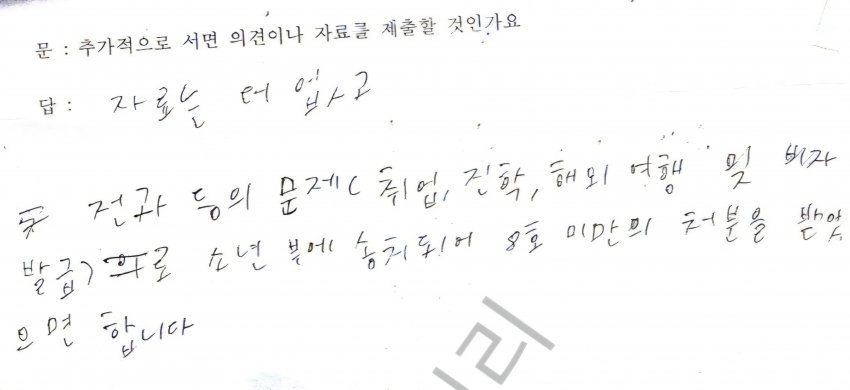 문 : 추가적으로 서면 의견이나 자료를 제출할 것인가요
답 : 자료는 더 없고
전과 등의 문제(취업, 진학, 해외 여행 및 비자
발급)로 소년 부에 송치되어 8호 미만의 처분을 받았
으면 합니다
리